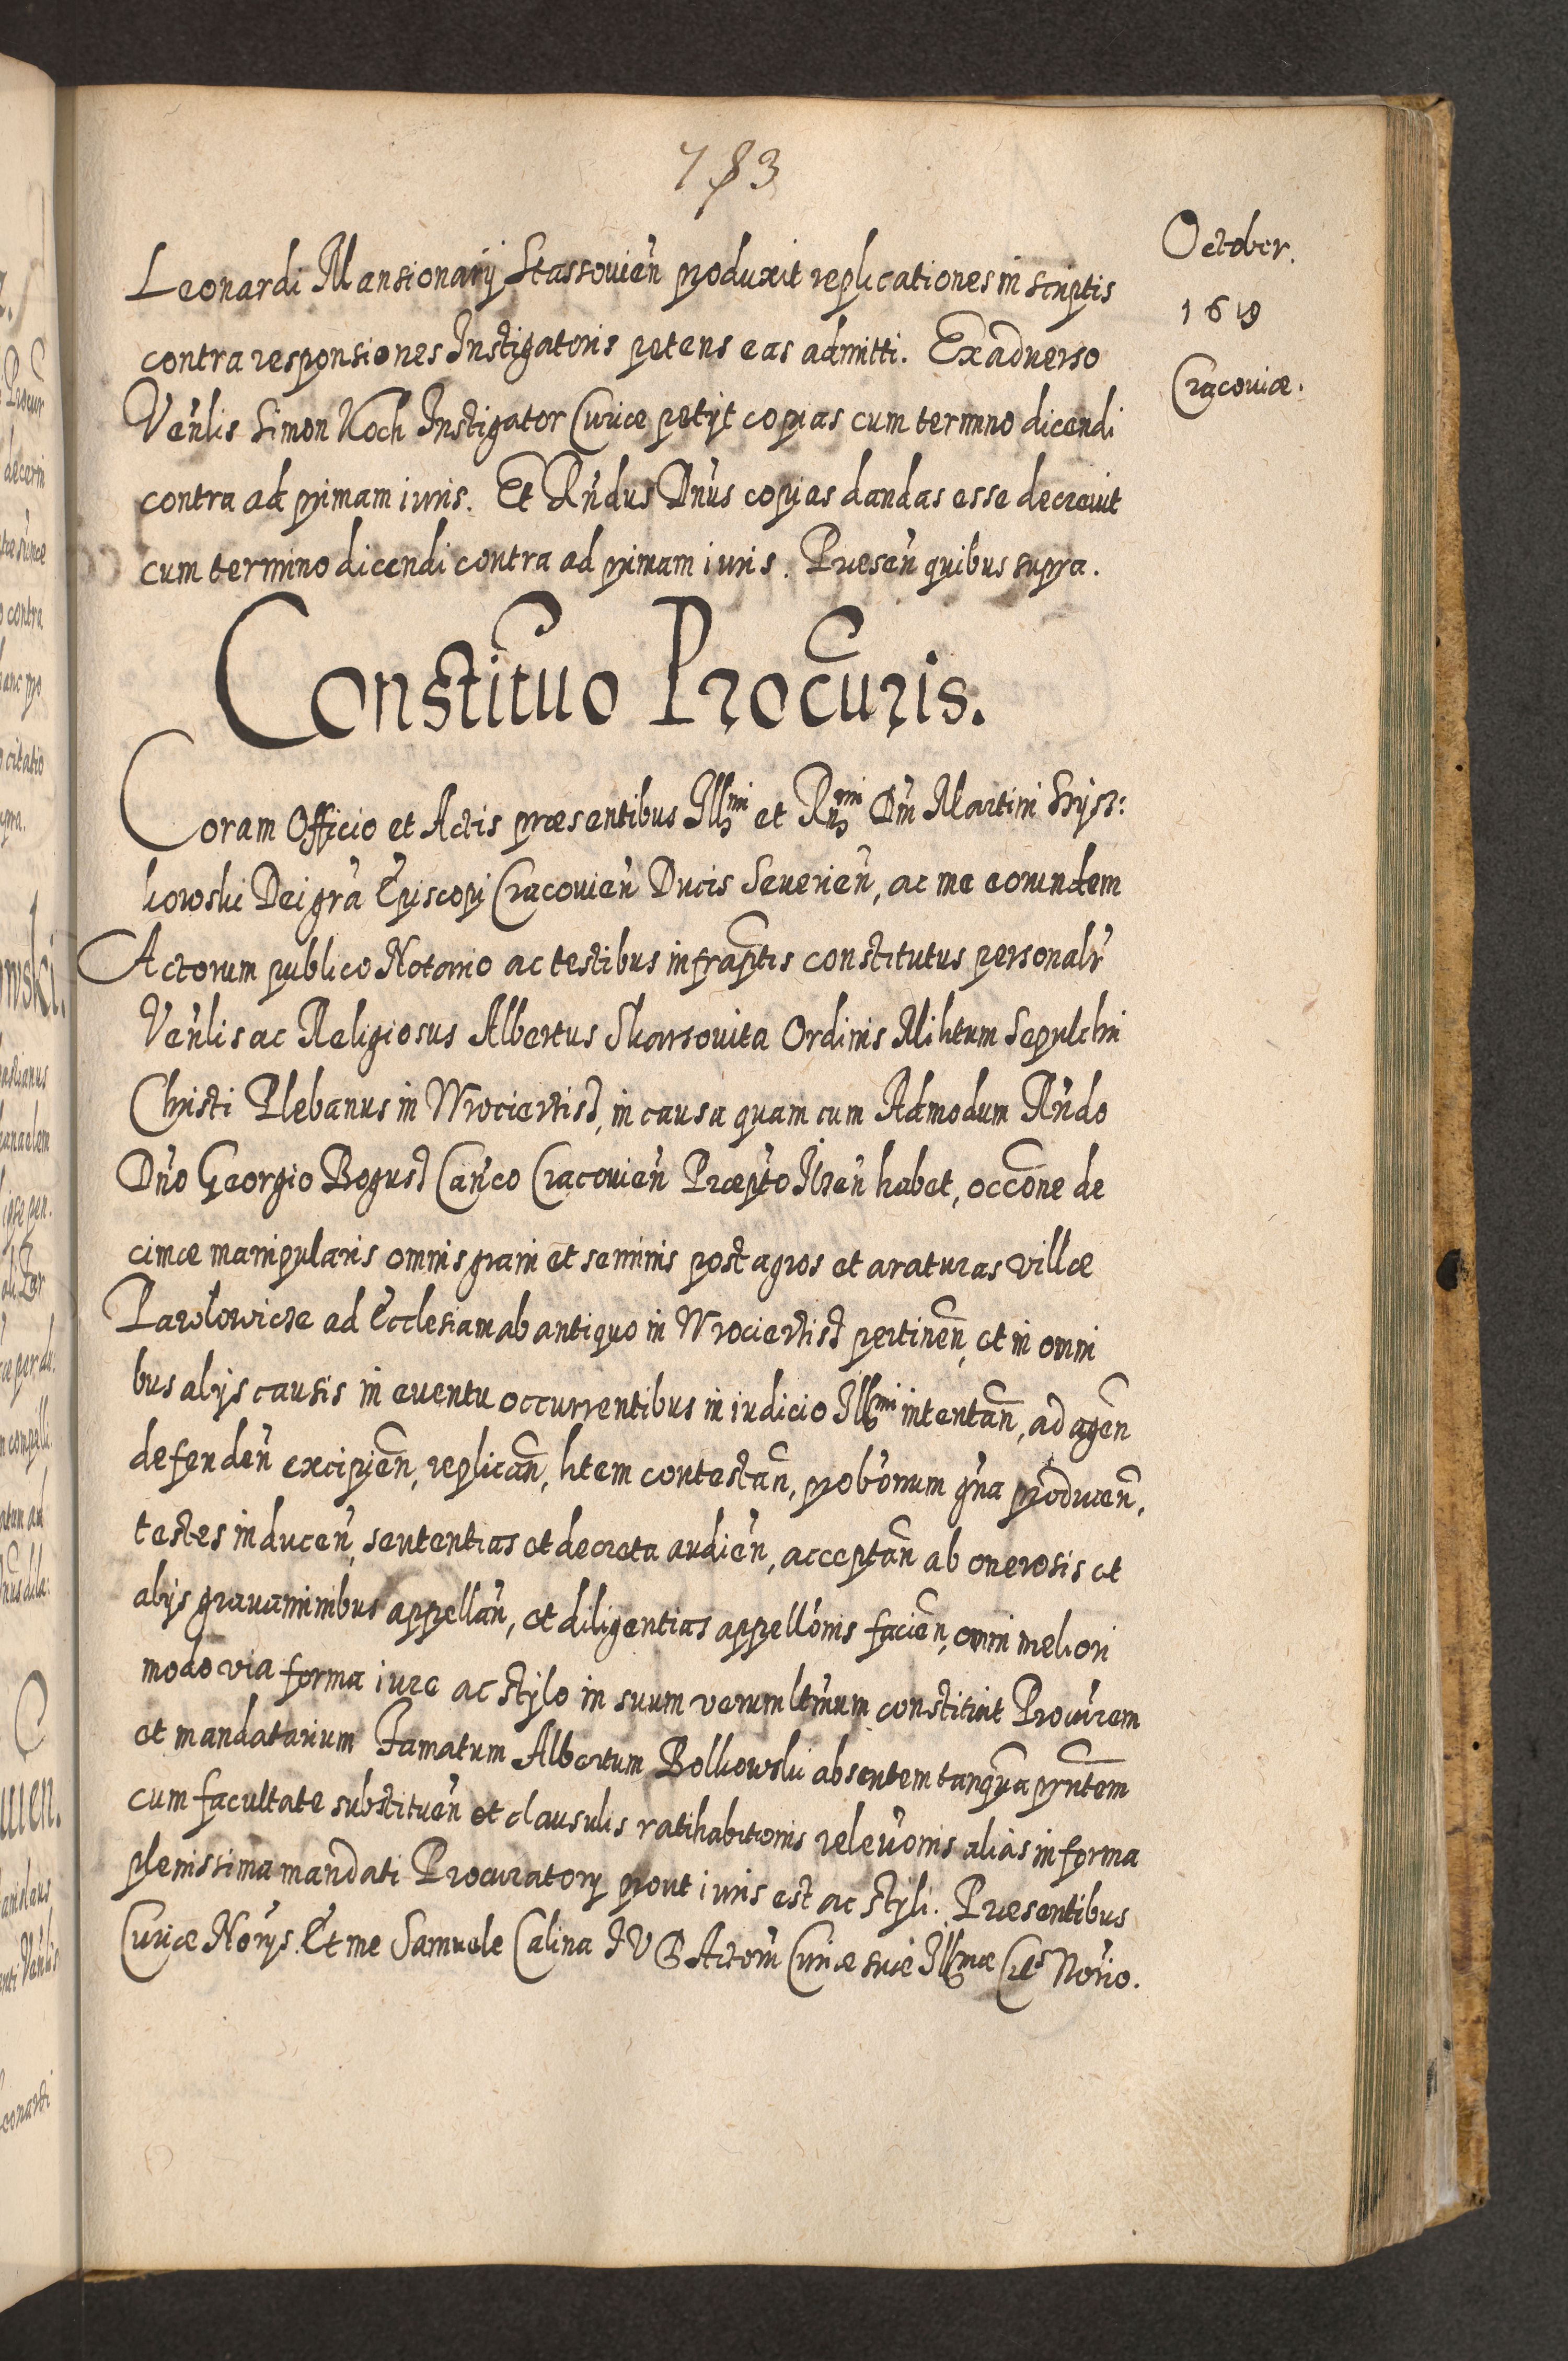 783
October.
1619
Cracoviæ.
Leonardi Mansionarij Stassovien̄ produxit replicationes in scriptis
contra responsiones Instigatoris petens eas admitti. Ex adverso
Ven̄lis Simon Koch Instigator Curiæ petijt copias cum termino dicendi
contra ad primam iuris. Et Rn̄dus Dn̄us copias dandas esse decrevit
cum termino dicendi contra ad primam iuris. Præsen̄ quibus supra.
Constitu͠o Procur̃is.
Coram Officio et Actis præsentibus Illmi et Rmi Dn̄i Martini Szysz:
kowski Dei grã Episcopi Cracovien̄ Ducis Severien̄, ac me eorundem
Actorum publico Notario ac testibus infrap̃tis constitutus personalr̃
Ven̄lis ac Religiosus Albertus Skarsovita Ordinis Militum Sepulchri
Christi Plebanus in Wrocierzisz, in causa quam cum Admodum Rn̄do
Dn̄o Georgio Bogusz Can̄co Cracovien̄ Præp̃to Ilzen̄ habet, occ͠one de
cimæ manipularis omnis grani et seminis post agros et araturas villæ
Pawlowicze ad Ecclesiam ab antiquo in Wrocierzisz pertinen̄, et in omni
bus alijs causis in eventu occurrentibus in iudicio Illmi intentan̄, ad agen̄
defenden̄ excipien̄, replican̄, litem contestan̄, prob͠onum g̃na producen̄,
testes inducen̄, sententias et decreta audien̄, acceptan̄ ab onerosis et
alijs gravaminibus appellan̄, et diligentias appell͠onis facien̄, omni meliori
modo via forma iure ac stylo in suum verum ltm̃um constituit Procur̃em
et mandatarium Famatum Albertum Bolkowski absentem tanquã pn̄tem
cum facultate substituen̄ et clausulis ratihabitionis relev͠onis alias in forma
plenissima mandati Procuratorij prout iuris est ac styli. Præsentibus
Curiæ Nor̃ijs. Et me Samuele Calina I V D Actor̃m Curiæ suæ Illmæ Cels Nor̃io.